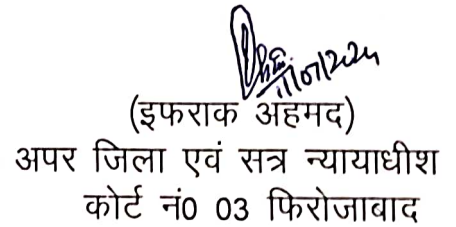 11/07/2024
(इफराक अहमद)
अपर जिला एवं सत्र न्यायाधीश
कोर्ट नं0 03 फिरोजाबाद